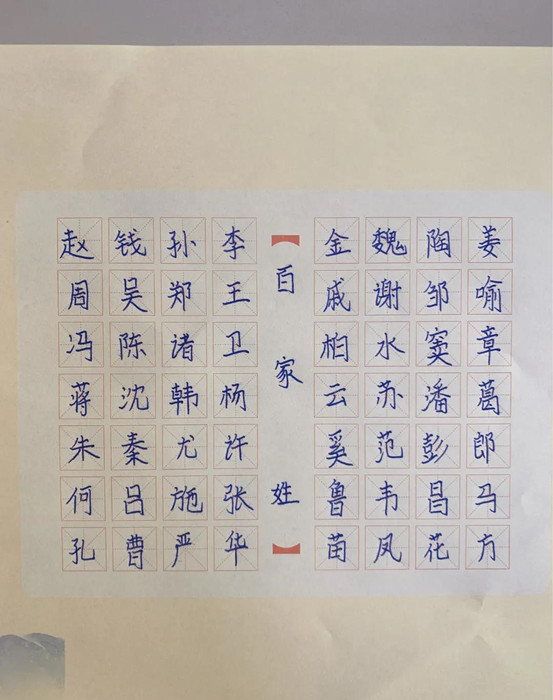 赵钱孙李
周吴郑王
冯陈诸卫
蒋沈韩杨
朱秦尤许
何吕施张
孔曹严华
百家姓
金魏陶姜
戚谢邹喻
柏水窦章
云苏潘葛
奚范彭郎
鲁韦昌马
苗凤花方